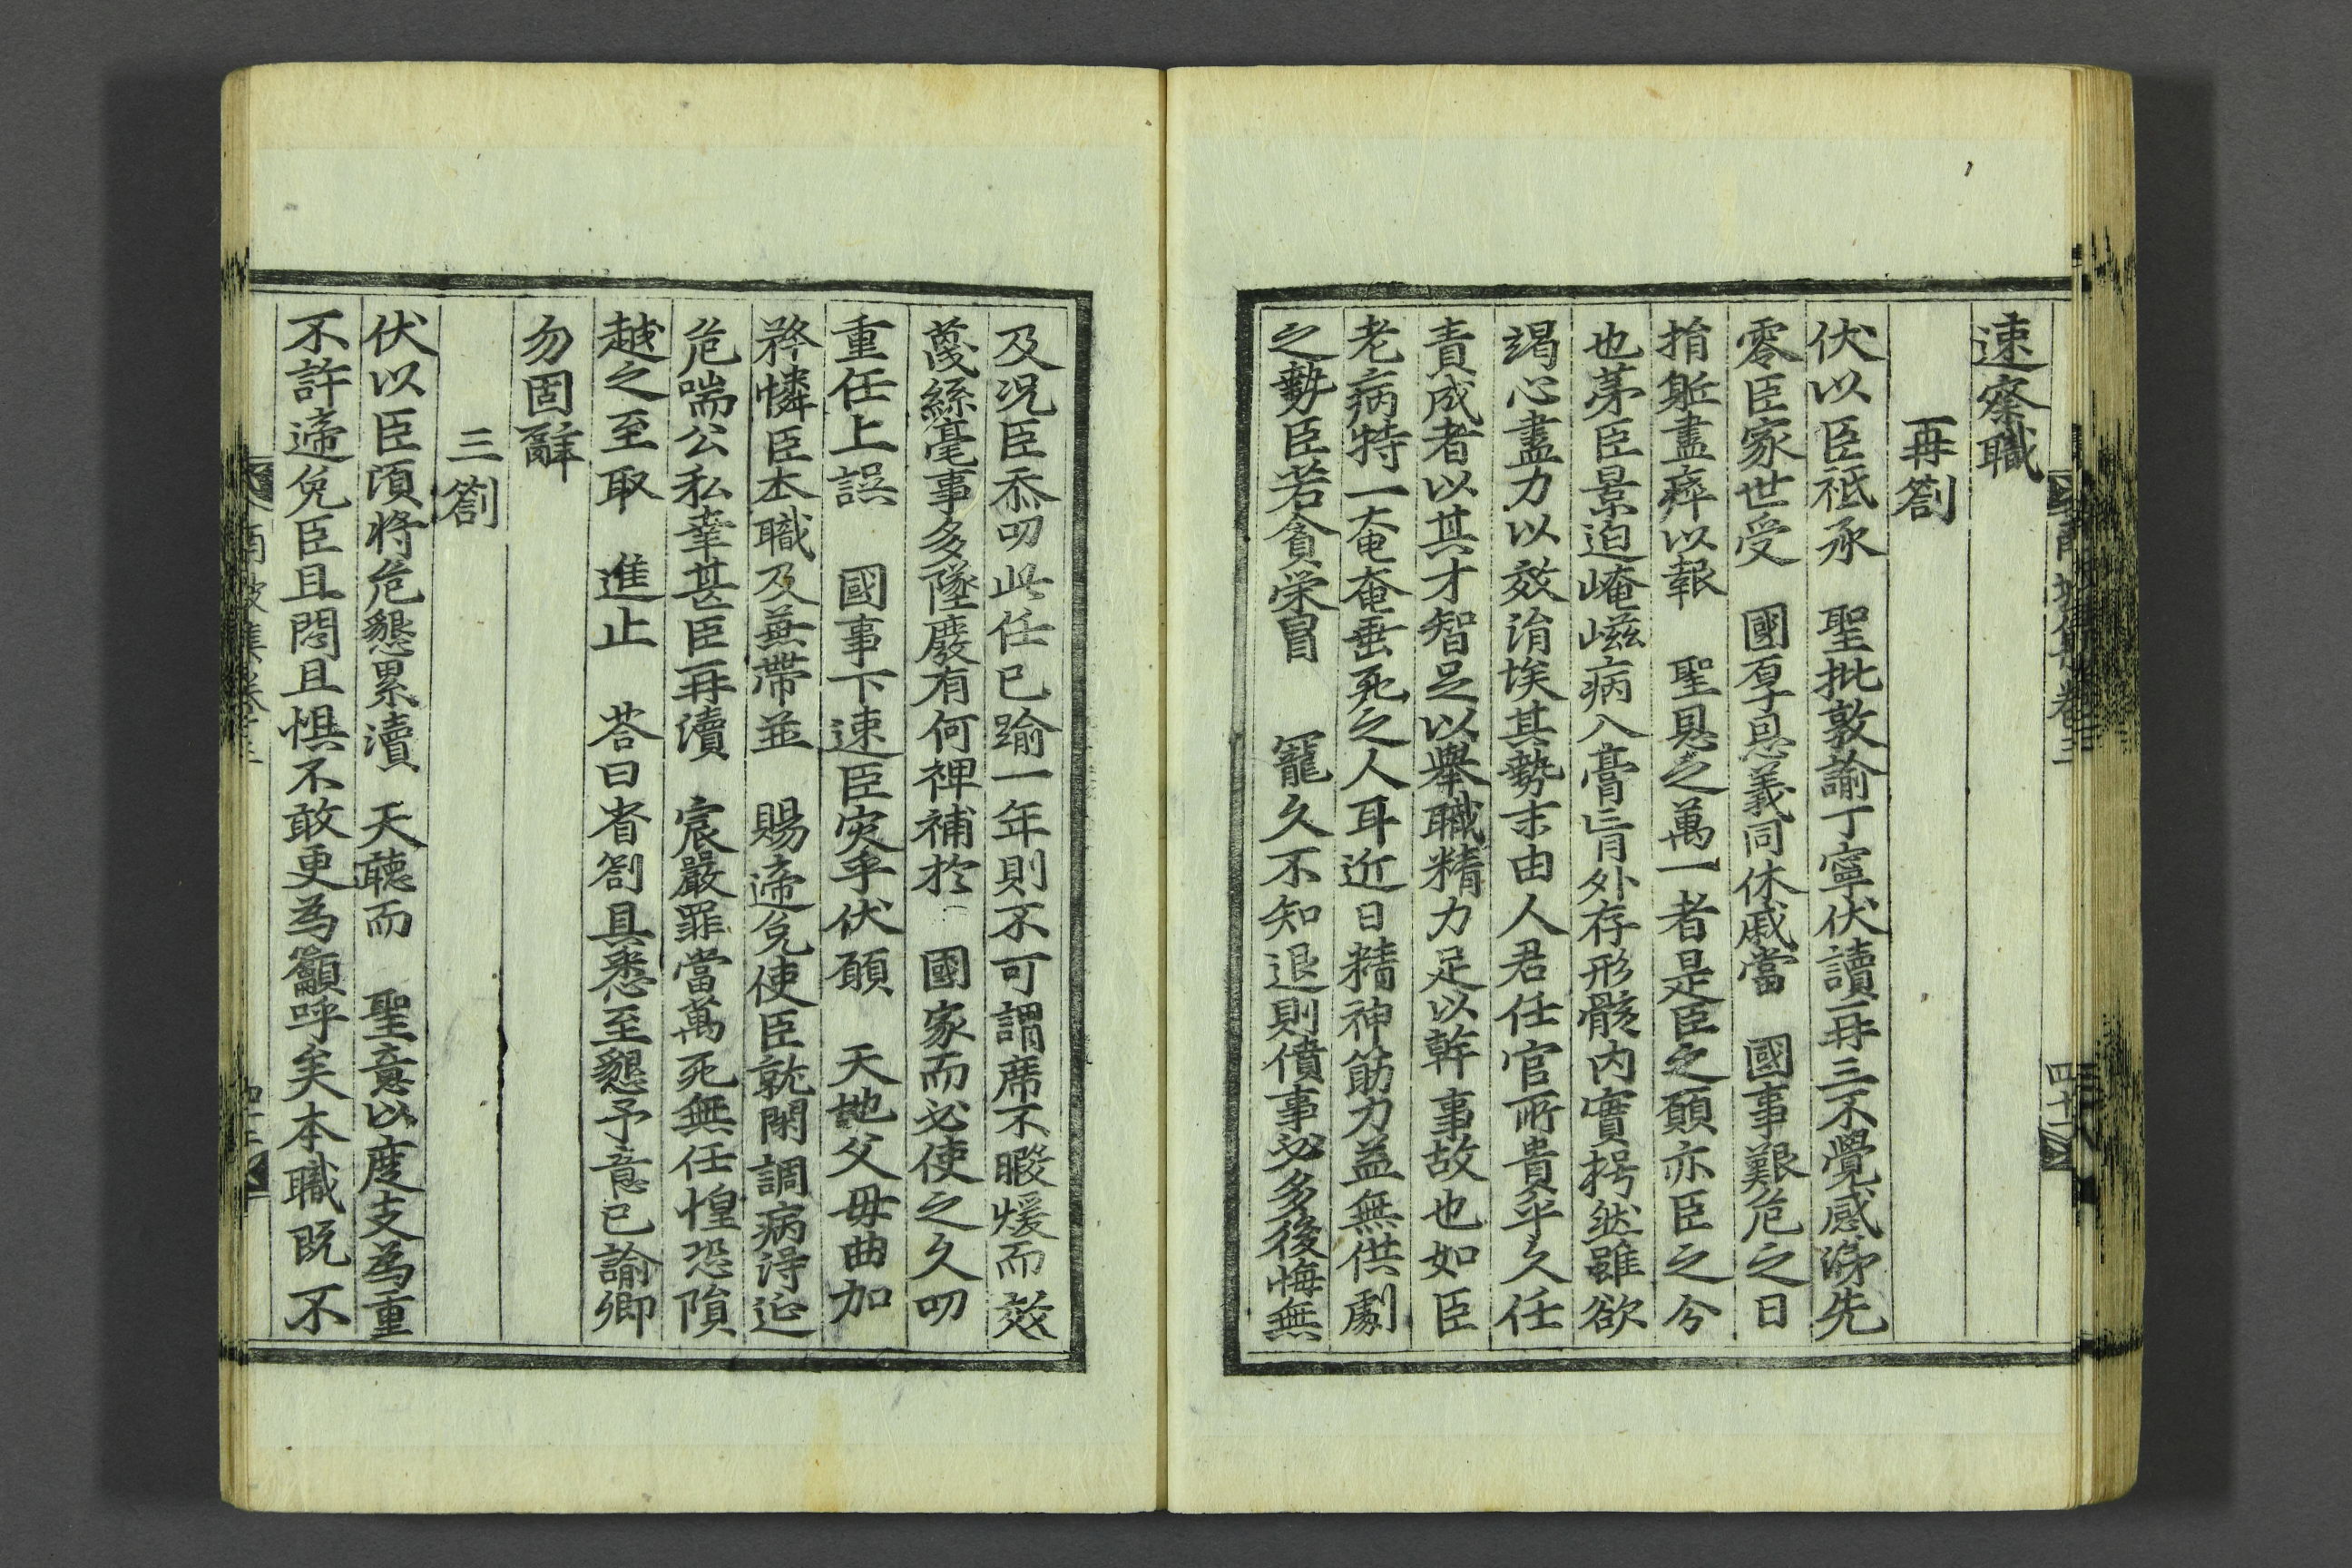 速察職
再劄
伏以臣祗承　聖批敦諭丁寧伏讀再三不覺感涕先
零臣家世受　國厚恩義同休戚當　國事艱危之日
捐軀盡瘁以報　聖恩之萬一者是臣之願亦臣之分
也第臣景迫崦嵫病入膏肓外存形骸内實枵然雖欲
竭心盡力以效涓埃其勢末由人君任官所貴乎久任
責成者以其才智足以舉職精力足以幹事故也如臣
老病特一奄奄垂死之人耳近日精神筋力益無供劇
之勢臣若貪榮冒　寵久不知退則僨事必多後悔無
及况臣忝叨此任已踰一年則不可謂席不暇煖而效
蔑絲毫事多墜廢有何裨補於　國家而必使之久叨
重任上誤　國事下速臣灾乎伏願　天地父母曲加
矜憐臣本職及兼帶並　賜遞免使臣就閑調病得延
危喘公私幸甚臣再瀆　宸嚴罪當萬死無任惶恐隕
越之至取　進止　荅曰省劄具悉至懇予意已諭卿
勿固辭
三劄
伏以臣頃將危懇累瀆　天聽而　聖意以度支為重
不許遞免臣且悶且惧不敢更為籲呼矣本職既不